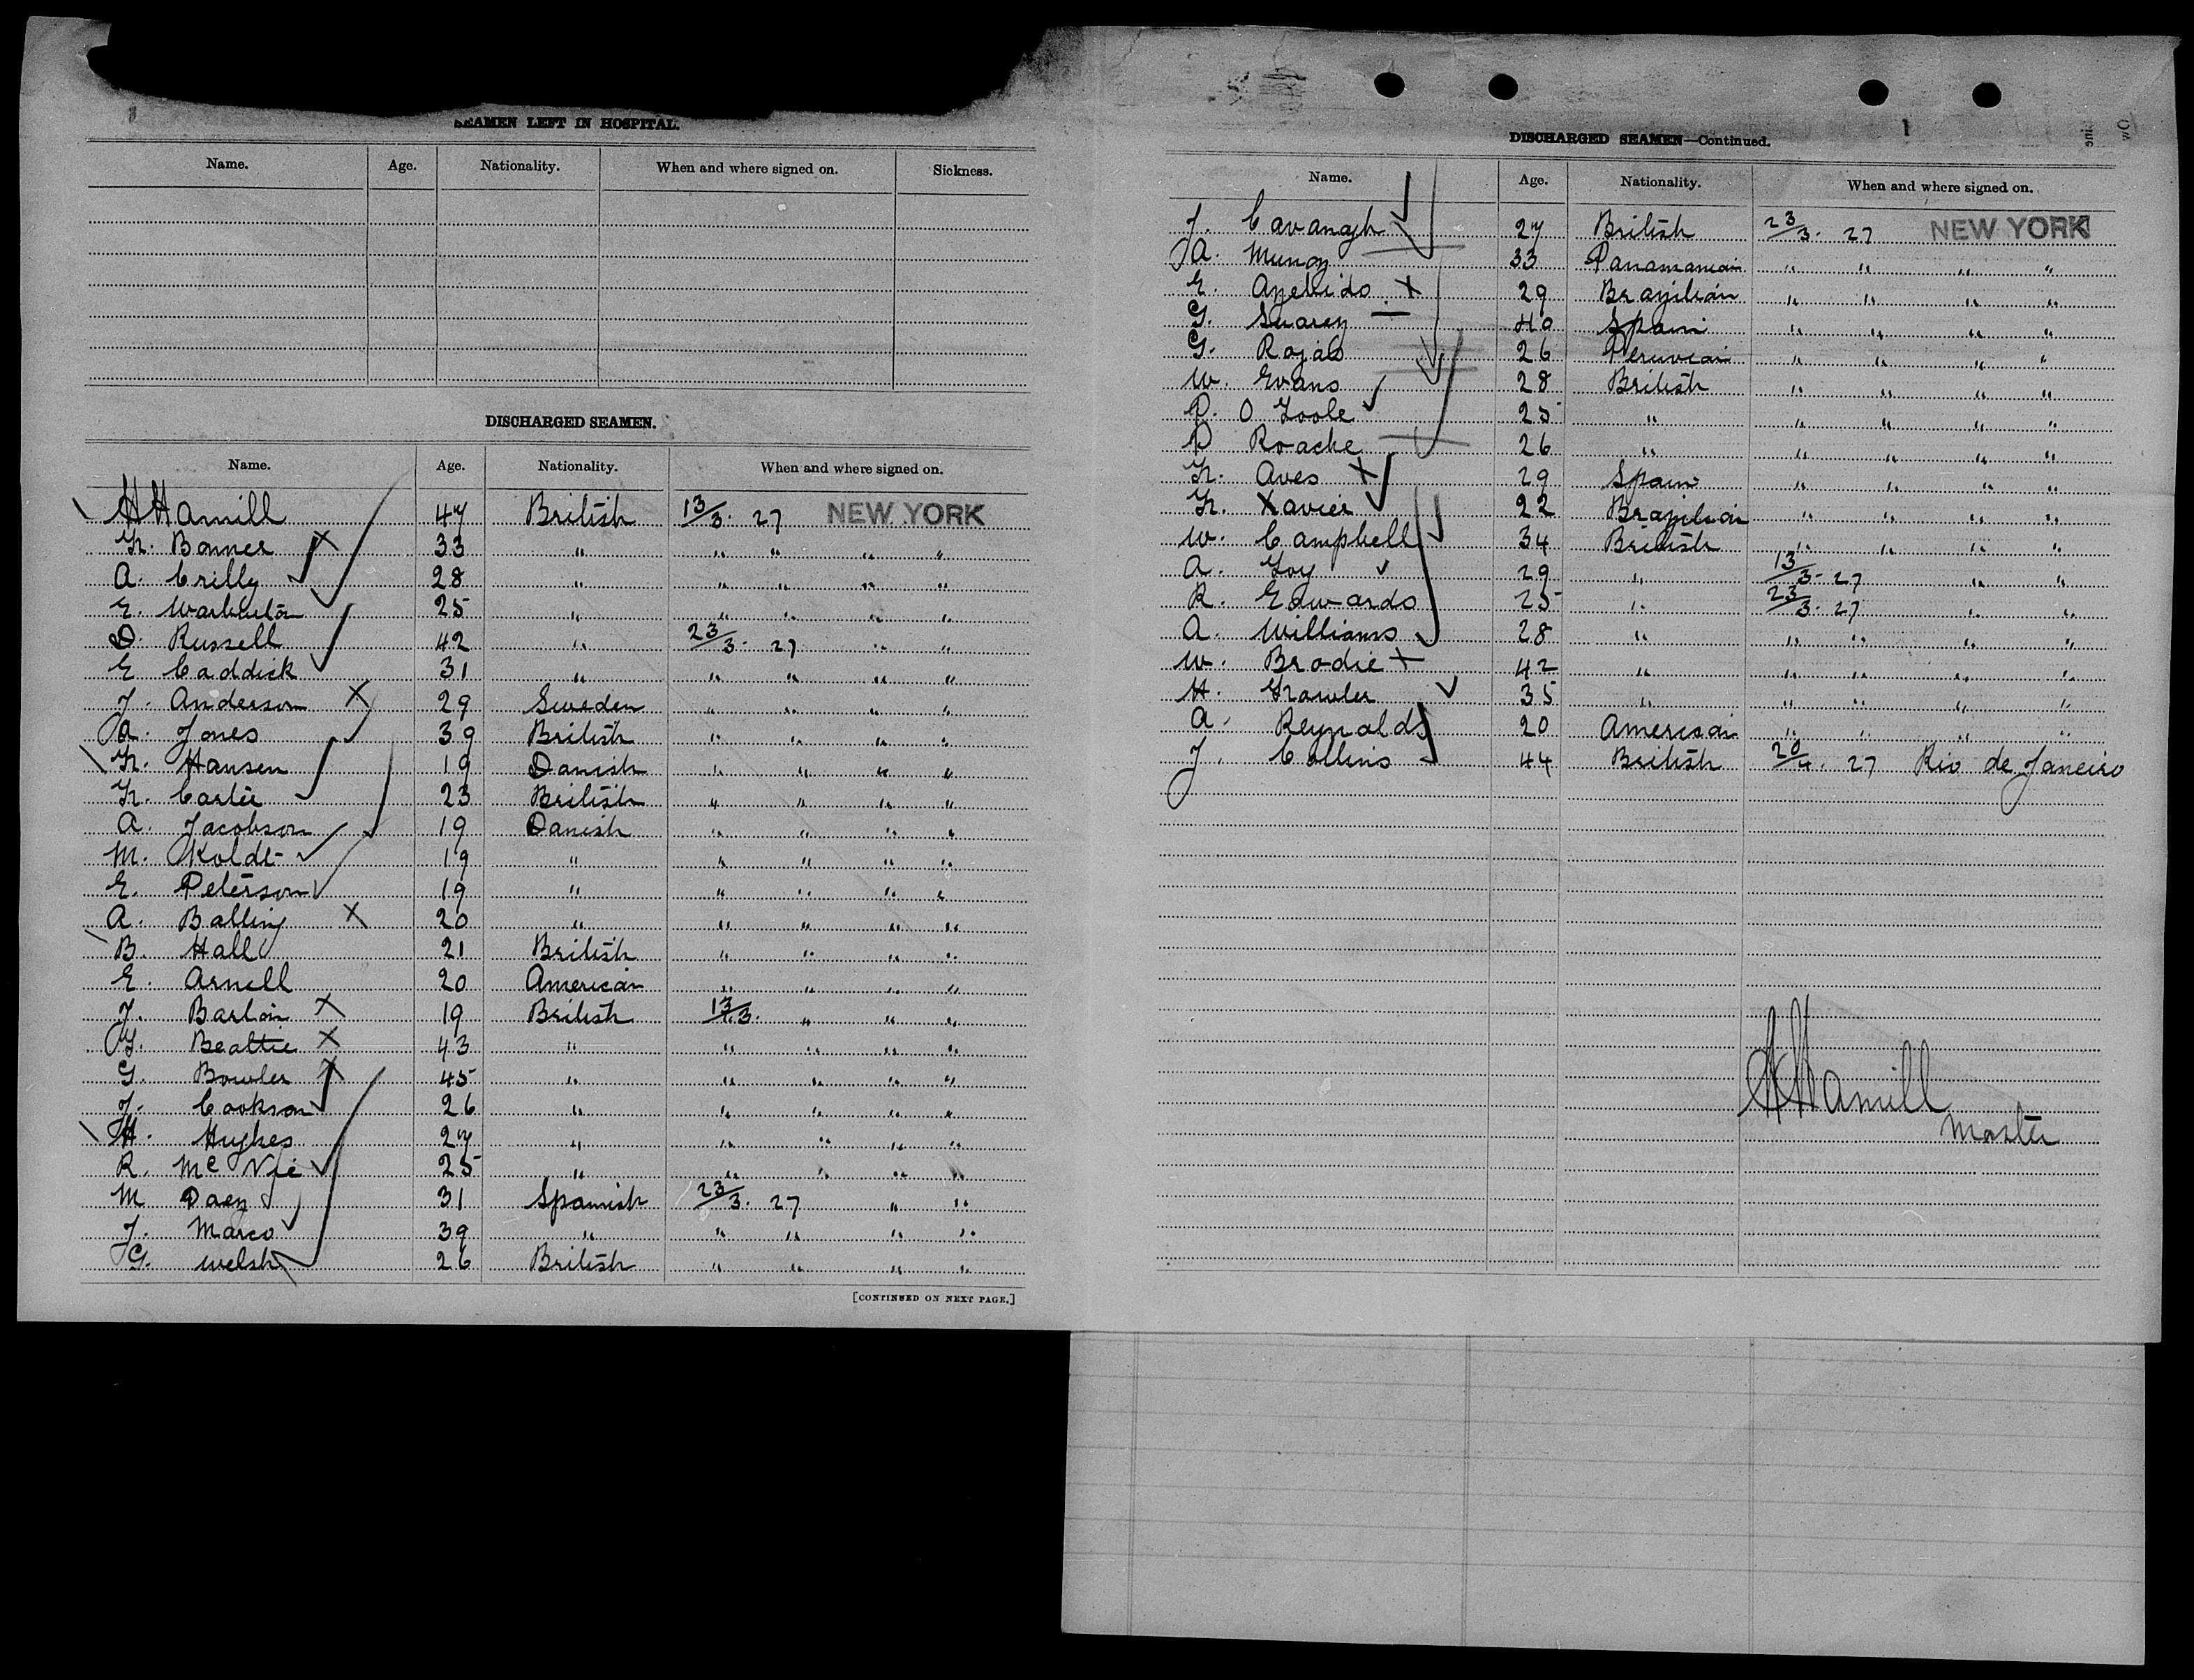 SEAMEN LEFT IN HOSPITAL.
Name. Age. Nationality. When and where signed on. Sickness.
DISCHARGED SEAMEN.
Name. Age. Nationality. When and where signed on.
A Hamill 47 British 13/3. 27 NEW YORK
Fr. Bonner X 33 " " " " "
A. Crilly 28 " " " " "
E. Warbuton 25 " " " " "
D. Russell 42 " 23/3. 27 " "
E Caddick 31 " " " " "
J. Anderson X 29 Sweden " " " "
A. Jones 39 British " " " "
Fr. Hansen 19 Danish " " " "
Fr. Carter 23 British " " " "
A. Jacobson 19 Danish " " " "
M. Koldt 19 " " " " "
E. Peterson 19 " " " " "
A. Balling X 20 " " " " "
B. Hall 21 British " " " "
E. Arnell 20 American " " " "
J. Barlow X 19 British 13/3. " " "
G. Beattie X 43 " " " " "
G. Bowler X 45 " " " " "
J. Cookson 26 " " " " "
H. Hughes 27 " " " " "
R. Mc Vie 25 " " " " "
M Daez 31 Spanish 23/3. 27 " "
J. Marco 39 " " " " "
G. Welsh 26 British " " " "
[CONTINUED ON NEXT PAGE.]
DISCHARGED SEAMEN—Continued.
Name. Age. Nationality. When and where signed on.
J. Cavanagh 27 British 23/3. 27 NEW YORK
A. Munoz 33 Panamanian " " " "
E. Azevido X 29 Brazilian " " " "
G. Suarez 40 Spain " " " "
G. Rojas 26 Peruvian " " " "
W. Evans 28 British " " " "
P. O Toole 25 " " " " "
P Roache 26 " " " " "
Fr. Aves X 29 Spain " " " "
Fr. Xavier 22 Brazilian " " " "
W. Campbell 34 British " " " "
A. Foy 29 " 13/3. 27 " "
R. Edwards 25 " 23/3. 27 " "
A. Williams 28 " " " " "
W. Brodie X 42 " " " " "
H. Grawler 35 " " " " "
A. Reynolds 20 American " " " "
J. Collins 44 British 20/4. 27 Rio de Janeiro
A Hamill
Master